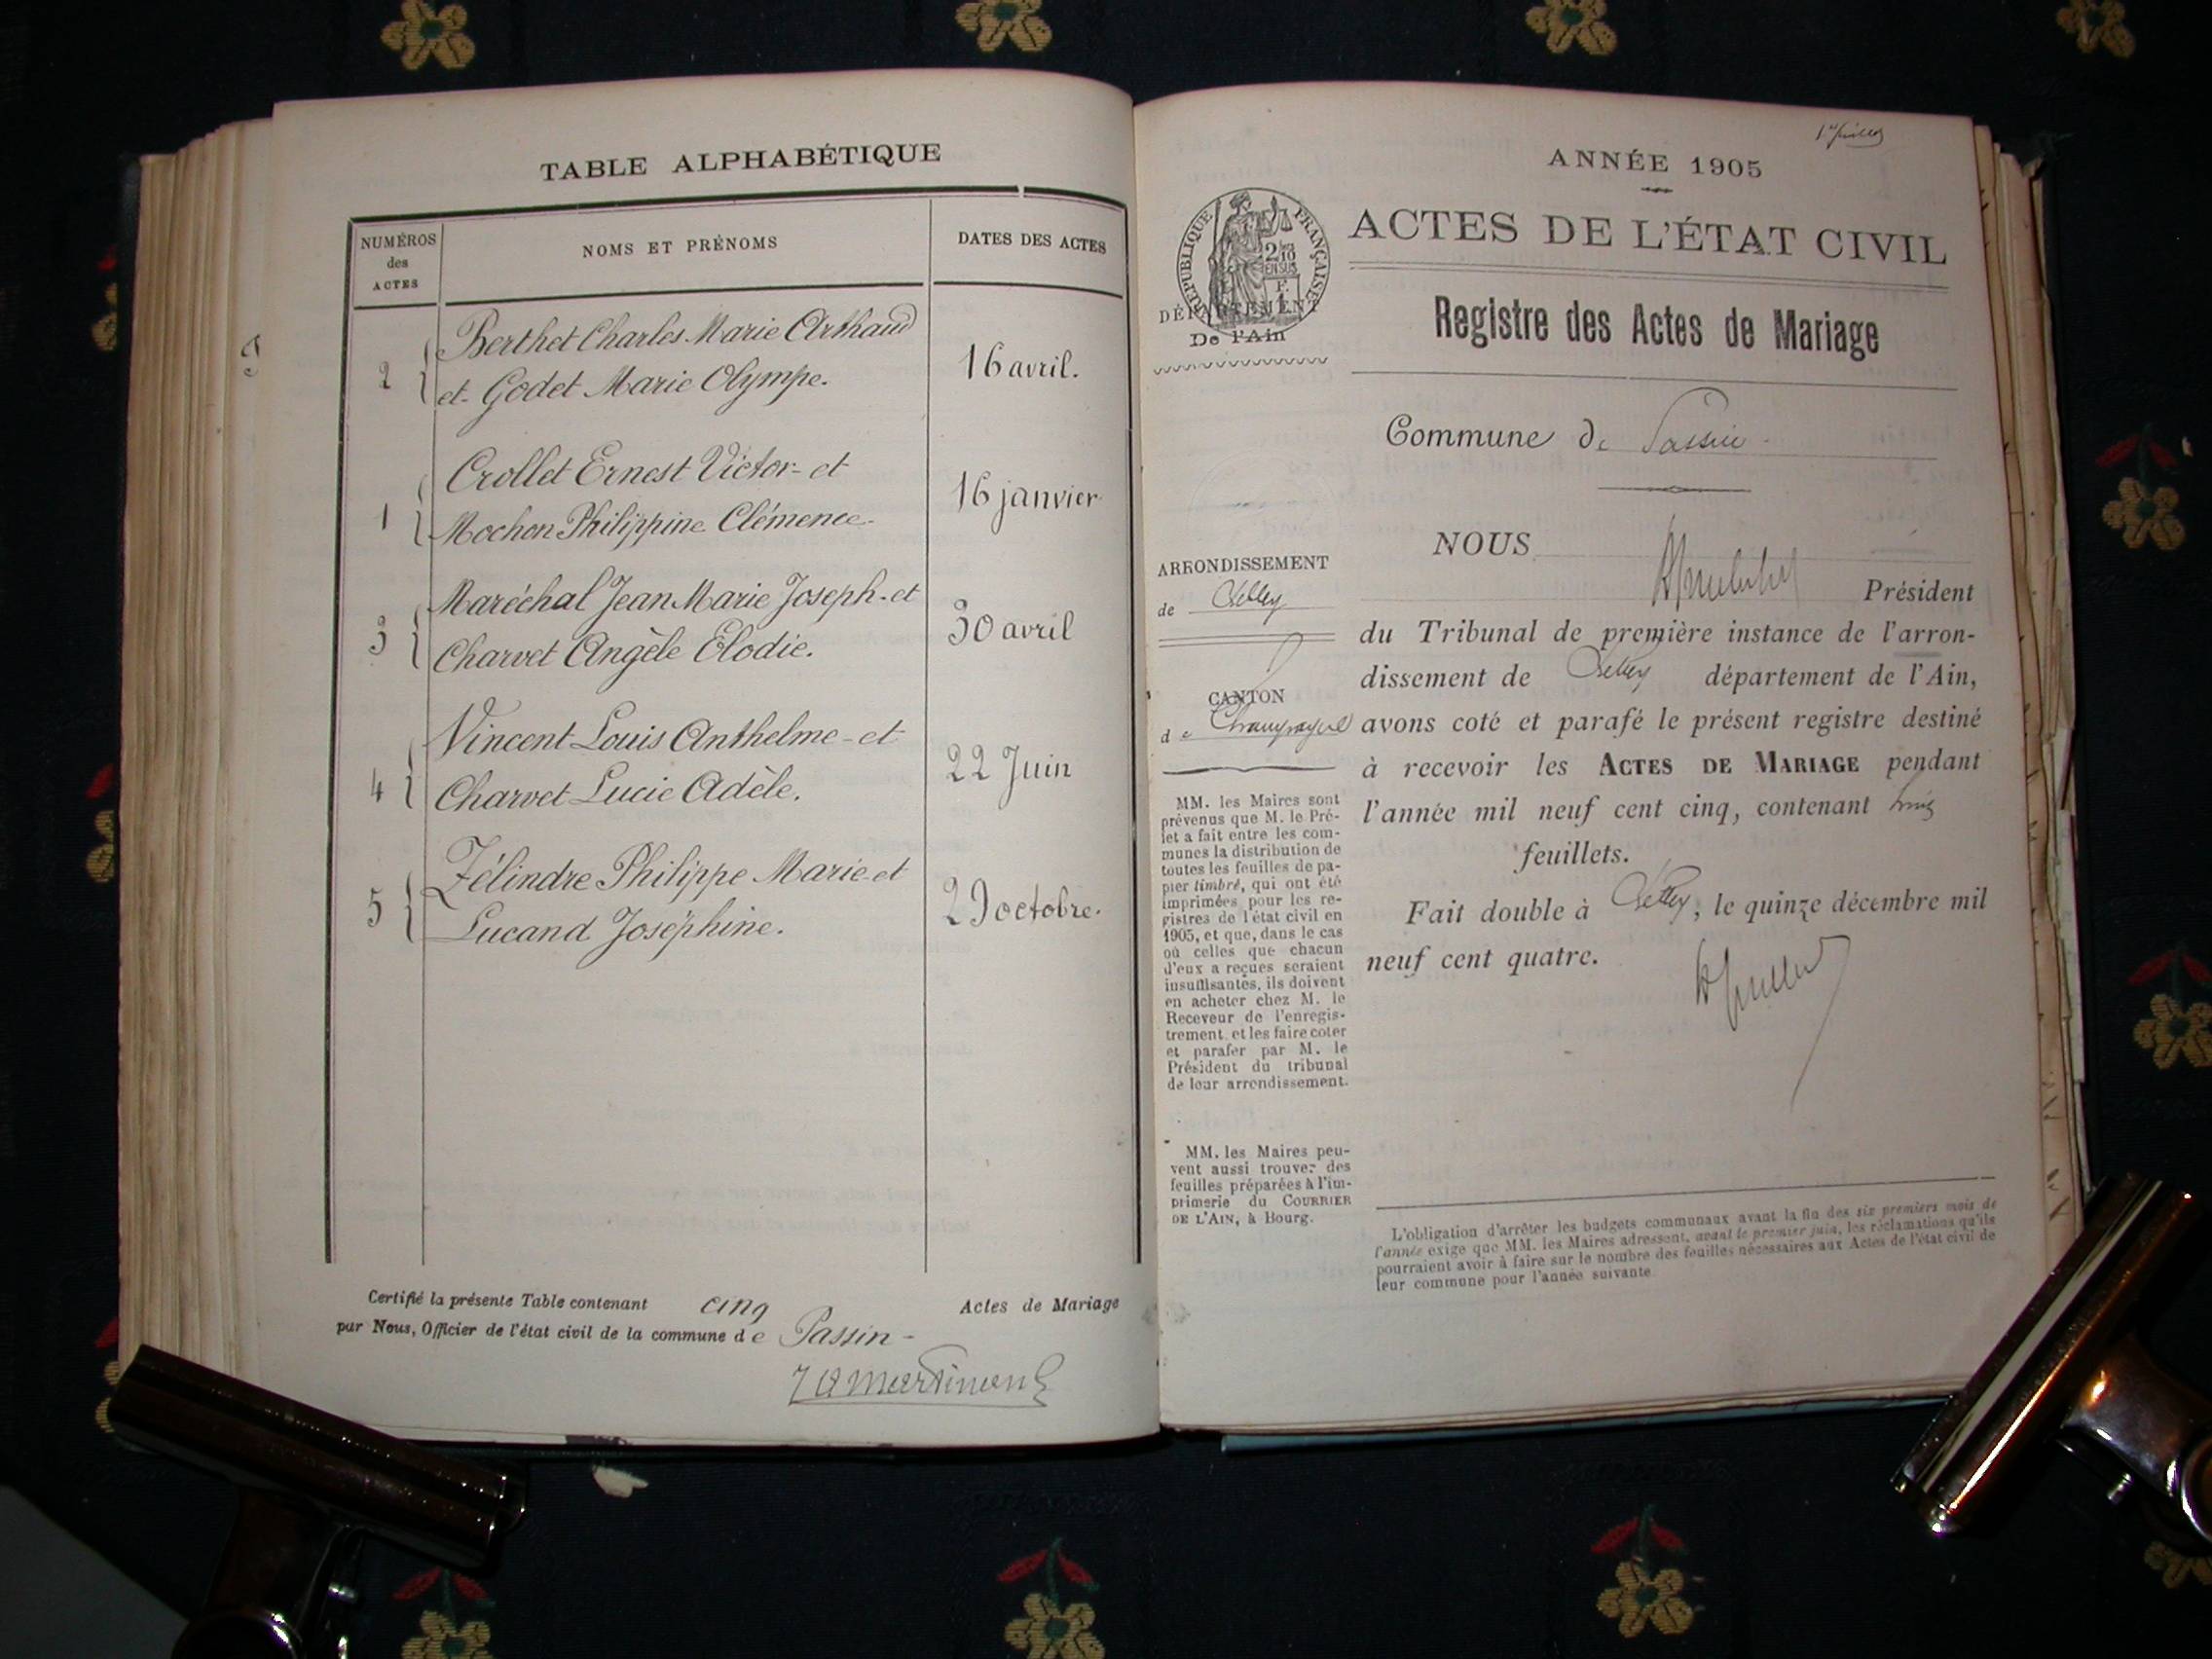 TABLE ALPHABÉTIQUE
NUMÉROS
des
ACTES
NOMS ET PRÉNOMS
DATES DES ACTES
2
Berthet Charles Marie Arthaud
et Godet Marie Olympe.
16 avril.
1
Crollet Ernest Victor et
Mochon Philippine Clémence.
16 janvier
3
Maréchal Jean Marie Joseph et
Charvet Angèle Elodie.
30 avril
4
Vincent Louis Anthelme et
Charvet Lucie Adèle.
22 Juin
5
Zélindre Philippe Marie et
Lucand Joséphine.
29 octobre.
Certifié la présente Table contenant cinq Actes de Mariage
par Nous, Officier de l'état civil de la commune de Passin -
ANNÉE 1905
ACTES DE L'ÉTAT CIVIL
RÉPUBLIQUE FRANÇAISE
DÉPARTEMENT
De l'Ain
Registre des Actes de Mariage
Commune de Passin
ARRONDISSEMENT
de Belley
CANTON
de Champagne
MM. les Maires sont
prévenus que M. le Pré-
fet a fait entre les com-
munes la distribution de
toutes les feuilles de pa-
pier timbré, qui ont été
imprimées pour les re-
gistres de l'état civil en
1905, et que, dans le cas
où celles que chacun
d'eux a reçues seraient
insuffisantes, ils doivent
en acheter chez M. le
Receveur de l'enregis-
trement et les faire coter
et parafer par M. le
Président du tribunal
de leur arrondissement.
MM. les Maires peu-
vent aussi trouver des
feuilles préparées à l'im-
primerie du COURRIER
DE L'AIN, à Bourg.
NOUS
Président
du Tribunal de première instance de l'arron-
dissement de Belley département de l'Ain,
avons coté et parafé le présent registre destiné
à recevoir les ACTES DE MARIAGE pendant
l'année mil neuf cent cinq, contenant
feuillets.
Fait double à Belley, le quinze décembre mil
neuf cent quatre.
L'obligation d'arrêter les budgets communaux avant la fin des six premiers mois de
l'année exige que MM. les Maires adressent, avant le premier juin, les réclamations qu'ils
pourraient avoir à faire sur le nombre des feuilles nécessaires aux Actes de l'état civil de
leur commune pour l'année suivante.